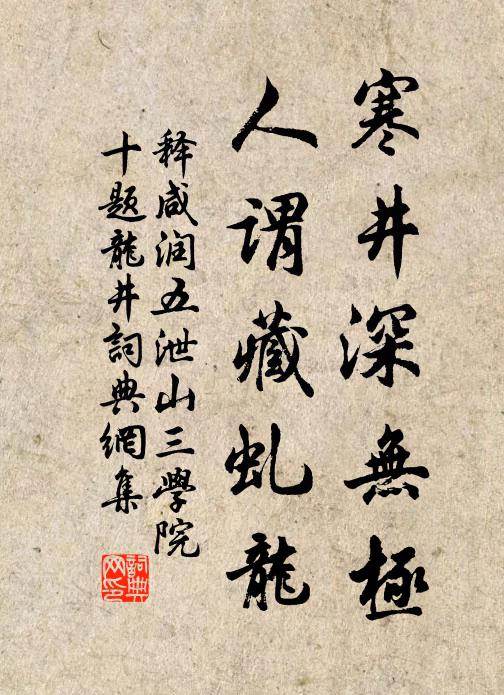 寒井深無極
人謂藏虬龍
释咸润五泄山三學院
十题龍井詞典網集
詞典
网印